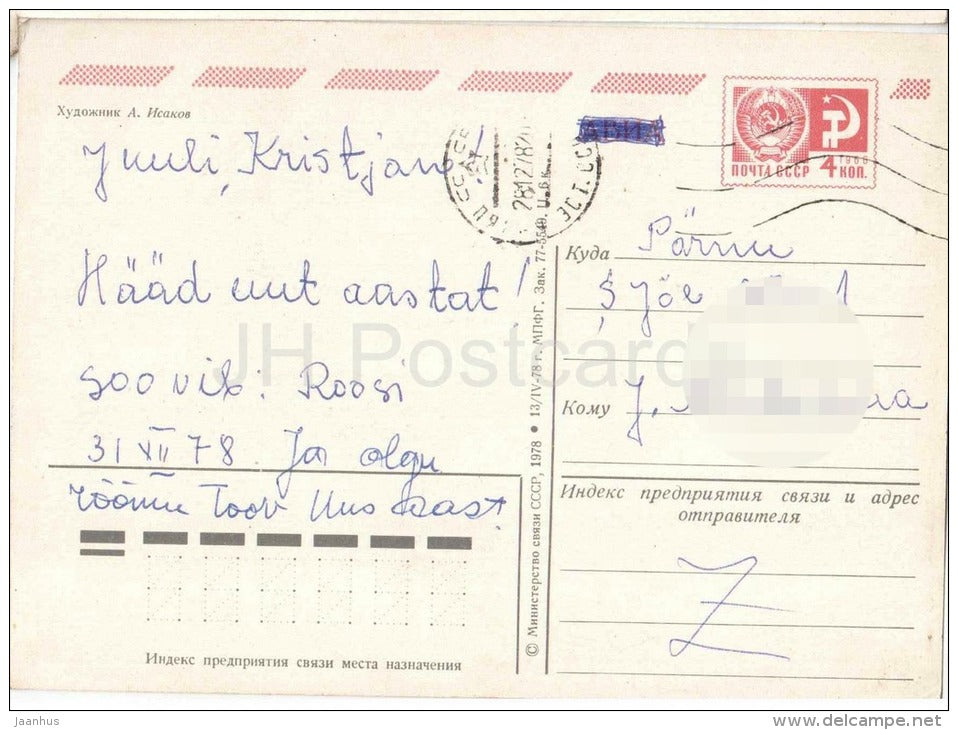 Художник А. Исаков
Juuli, Kristjan!
Häad uut aastat!
soovib: Roosi
31 XII 78. Ja olgu
rõõmu Toov Uus aast
Индекс предприятия связи места назначения
© Министерство связи СССР, 1978 • 13/IV-78 г. МПФГ. Зак. 77-5549. Ц. 6к.
АВИА
281278
ПОЧТА СССР 4 КОП.
1966
Куда Pärnu
Jõe 1
Кому J.
Индекс предприятия связи и адрес
отправителя
JH Postcards
Jaanhus
www.delcampe.net